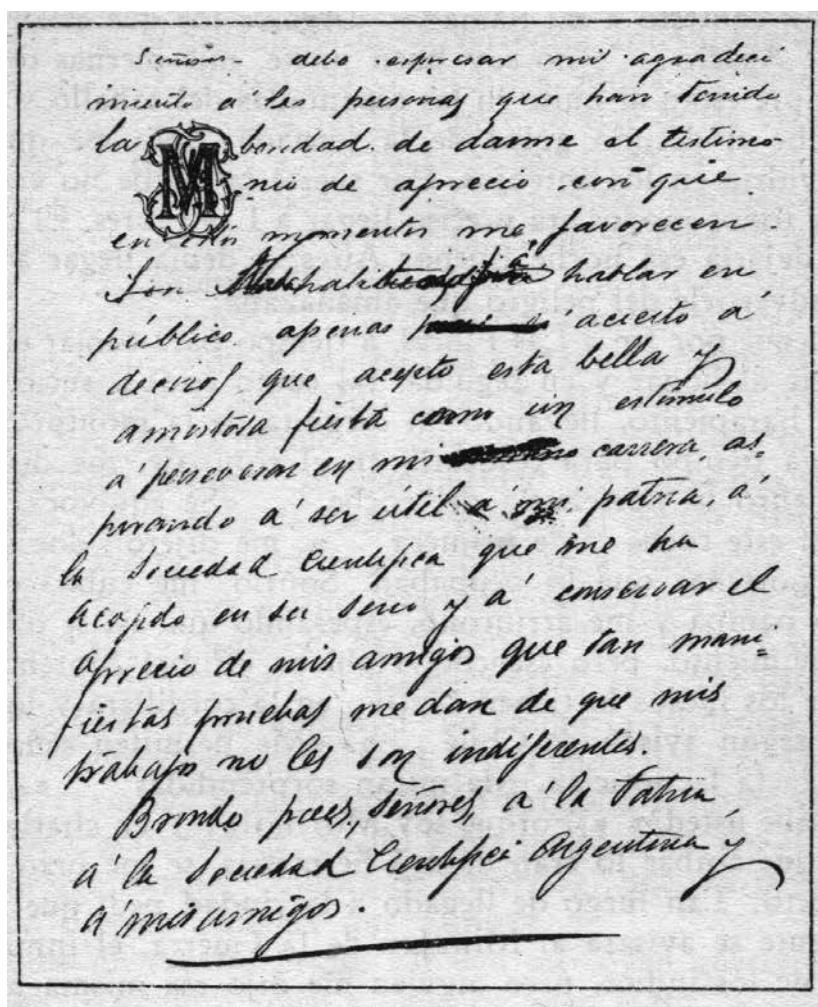 Señores - debo espresar mi agradeci
miento á las personas que han tenido
la bondad de darme el testimo
nio de aprecio con que
en estos momentos me favorecen.
Sin habituado á hablar en
público apenas acierto á
deciros que acepto esta bella y
amistosa fiesta como un estímulo
á perseverar en mi carrera, as-
pirando á ser útil á mi patria, á
la Sociedad Científica que me ha
acojido en su seno y á conservar el
aprecio de mis amigos que tan mani-
fiestas pruebas me dan de que mis
trabajos no les son indiferentes.
Brindo pues, Señores, á la Patria
á la Sociedad Científica Argentina y
á mis amigos.